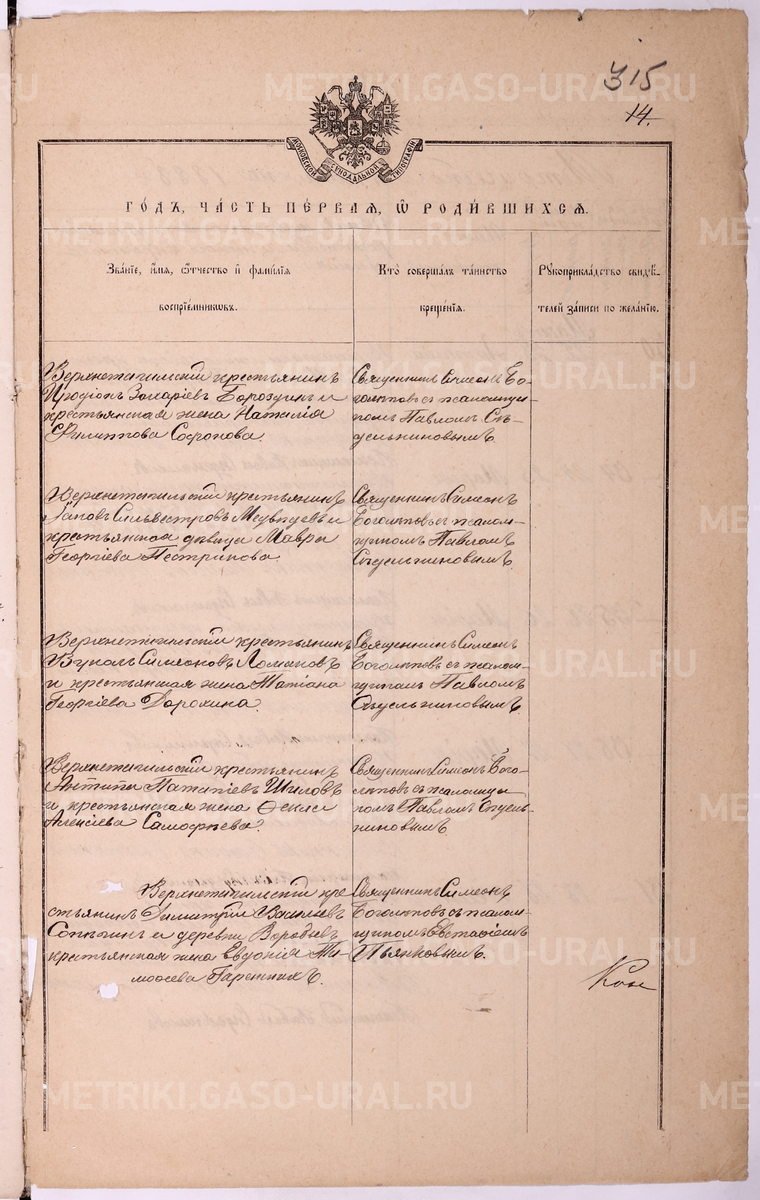 315
14.
МОСКОВСКОЙ СѴНОДАЛЬНОЙ ТИПОГРАФІИ
ГОДЪ, ЧАСТЬ ПЕРВАЯ, Ѿ РОДИВШИХСЯ.
Званіе, имя, ѿчество и фамилія
воспріемниковъ.
Кто совершалъ таинство
крещенія.
Рукоприкладство свидѣ-
телей записи по желанію.
Верхнетагильскій крестьянинъ
Иродіонъ Захаріевъ Бороздинъ и
крестьянская жена Наталія
Филиппова Софонова.
Священникъ Симеонъ Бо-
голѣповъ съ псаломщи-
комъ Павломъ Сѣ-
дельниковымъ.
Верхнетагильскій крестьянинъ
Іаковъ Сильвестровъ Медвѣдевъ и
крестьянская дѣвица Мавра
Георгіева Пестрикова.
Священникъ Симеонъ
Боголѣповъ съ псалом-
щикомъ Павломъ
Сѣдельниковымъ.
Верхнетагильскій крестьянинъ
Вуколъ Симеоновъ
и крестьянская жена Татіана
Георгіева Дорохина.
Священникъ Симеонъ
Боголѣповъ съ псалом-
щикомъ Павломъ
Сѣдельниковымъ.
Верхнетагильскій крестьянинъ
Антипа Патапіевъ Шиловъ
и крестьянская жена Ѳекла
Алексіева
Священникъ Симеонъ Бого-
лѣповъ съ псаломщи
комъ Павломъ Сѣдель-
никовымъ.
Верхнетагильскій кре
стьянинъ Димитрій Василіевъ
и деревни Воробьев
крестьянская жена Евдокія Ти
моѳеева
Священникъ Симеонъ
Боголѣповъ съ псалом-
щикомъ Евстаѳіемъ
Пьянковымъ.
METRIKI.GASO-URAL.RU